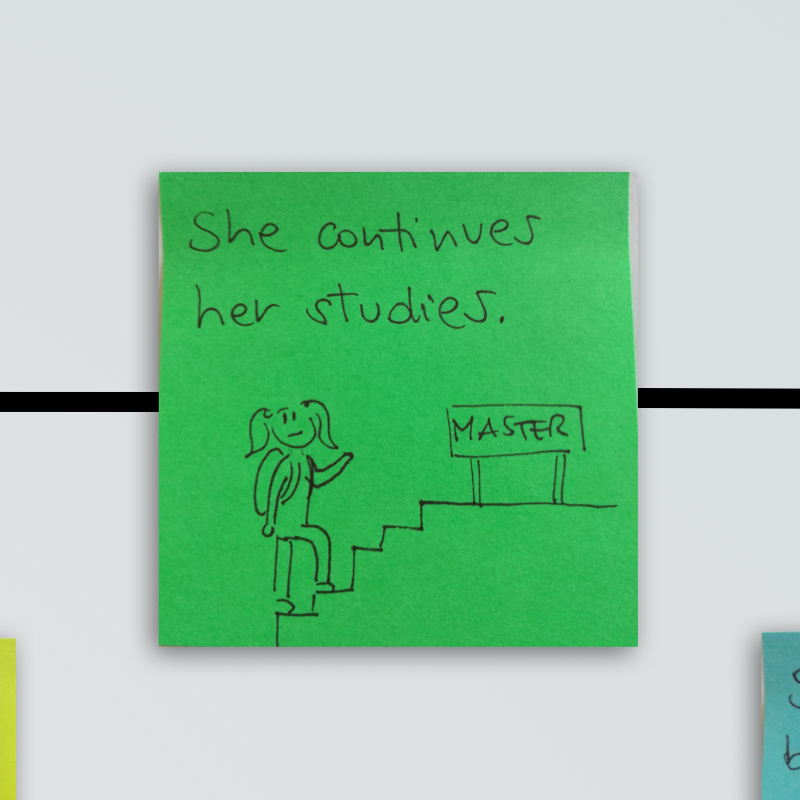 She continues
her studies.
MASTER